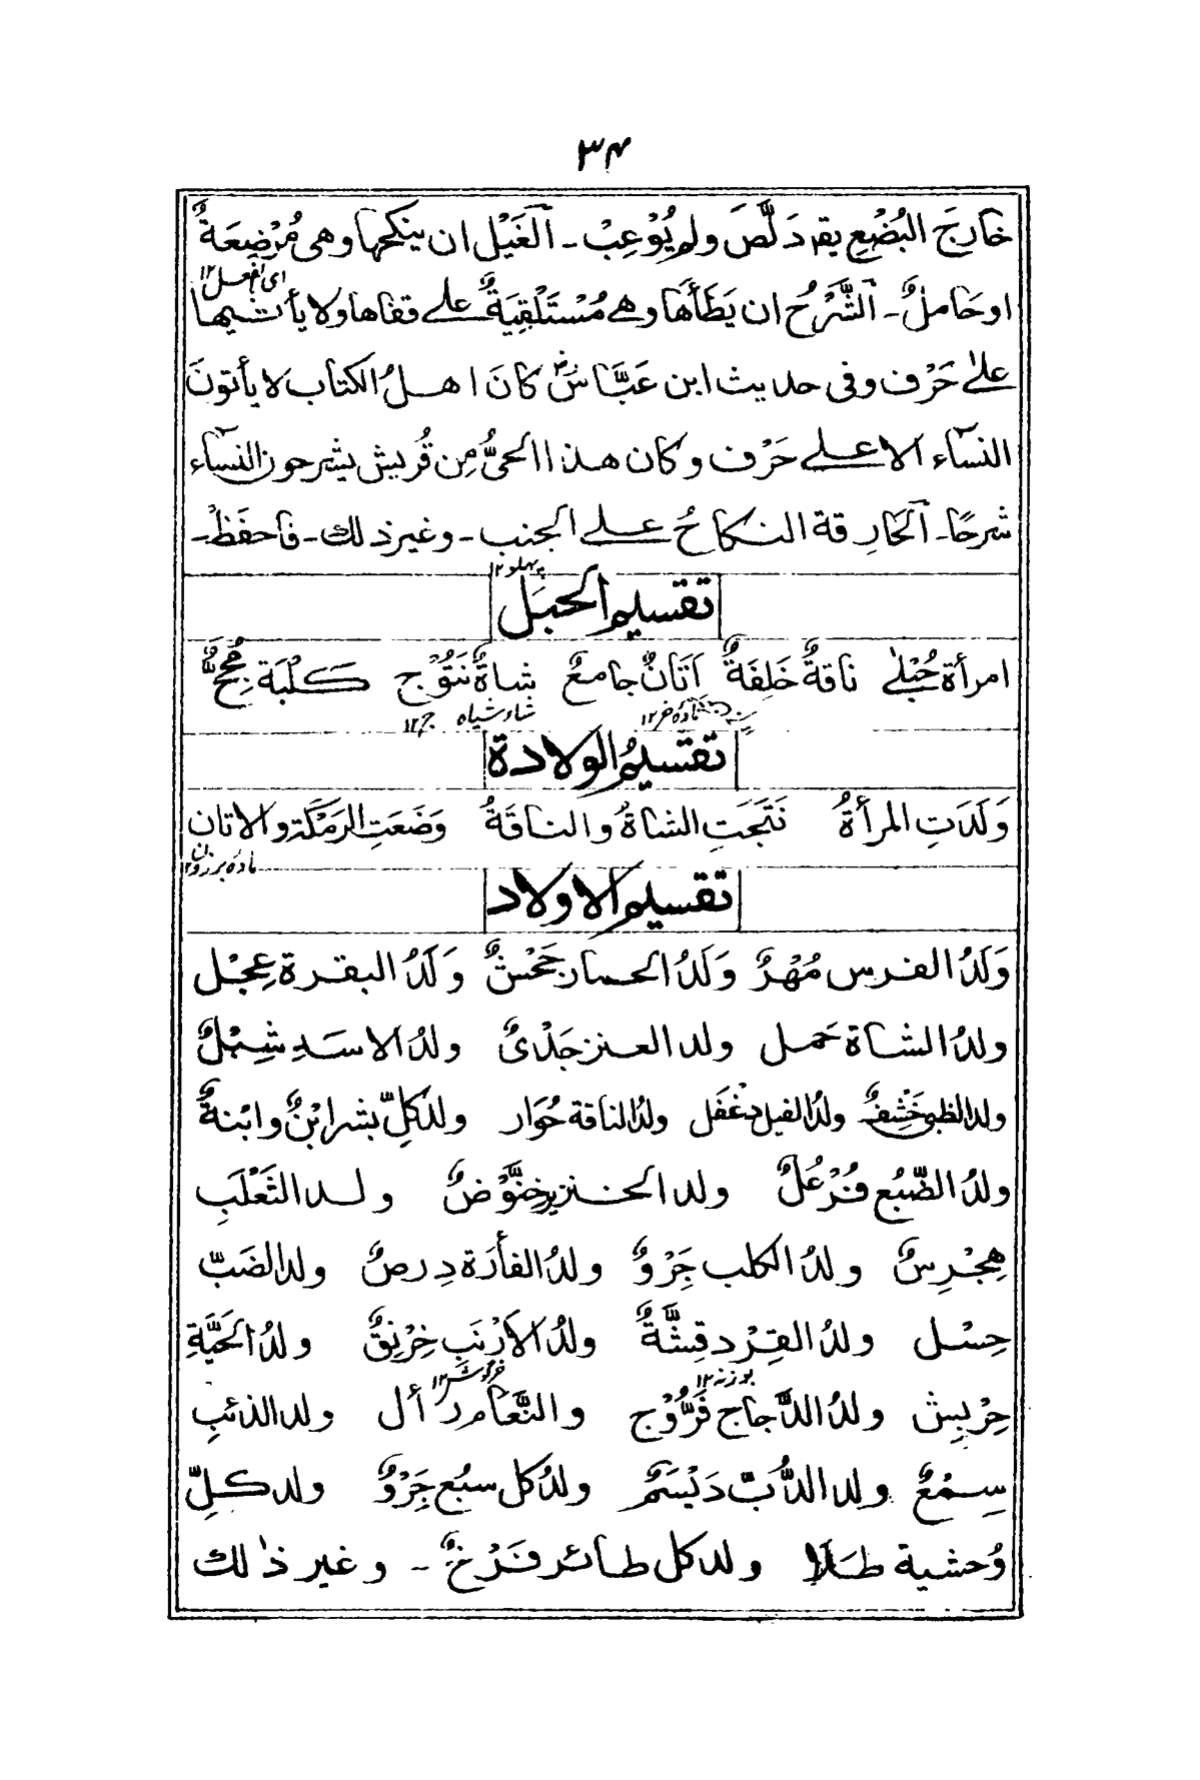 ۳۴
خارجَ البُضْعِ يقه دَلَّصَ ولم يُوْعِبْ ـ اَلغَيْل ان ينكحها وهى مُرْضِعَةٌ
اى الفعل ۱۲
او حَاملٌ ـ اَلشَّرْحُ ان يَطَأَهَا وهے مُسْتَلْقِيَةٌ علے قفاها ولا يأتيها
علىٰ حَرْف وفى حديث ابن عَبَّاسٍ كَانَ اهلُ الكتاب لا يأتونَ
النسَاء الا علے حَرْف وكان هذا الحىُّ مِن قُريش يشرحون النسَاء
شرحًا ـ اَلحَارِقة النكاحُ علے الجنب ـ وغير ذلك ـ فاحفَظْ ـ
پہلو ۱۲
تقسيم الحبَل
امرأة حُبْلےٰ ناقةٌ خَلِفَةٌ اَتَانٌ جامعٌ شاةٌ نَتُوْج كَلْبَة مُجِحٌّ
مادۂ خر ۱۲ شاء شياه ج ۱۲
تقسيمُ الولادة
وَلَدَتِ المرأةُ نَتَجَتِ الشاةُ والناقَةُ وَضَعَتِ الرَمَكَة والاتان
مادۂ برذون ۱۲
تقسيم الاولاد
وَلَدُ الفرس مُهْرٌ وَلَدُ الحمار جَحْشٌ وَلَدُ البقرة عِجْل
ولدُ الشاة حَمل ولد العنز جَدْىٌ ولدُ الاسَدِ شِبْلٌ
ولد الظبى خَشِفٌ ولدُ الفيل دغْفَل ولدُ الناقة حُوَار ولدُ كلِّ بشر ابْنٌ وابْنةٌ
ولدُ الضَّبُع فُرْعُلٌ ولد الخنزير خِنَّوْصٌ ولد الثَعْلَبِ
هِجْرِسٌ ولدُ الكلب جَرْوٌ ولدُ الفأرَة دِرصٌ ولد الضَبّ
حِسْل ولدُ القِرْد قِشَّةٌ ولدُ الأرْنَبِ خِرْنِقٌ ولدُ الحَيَّةِ
بوزنہ ۱۲ خرگوش ۱۲
حِرْبِش ولدُ الدَّجاج فَرُّوْج والنَّعَام رَأل ولد الذئبِ
سِمْعٌ ولد الدُّبّ دَيْسَمٌ ولدُ كل سبُع جَرْوٌ ولد كلِّ
وُحشية طَلَا ولد كل طائر فَرْخٌ ـ وغير ذٰلك